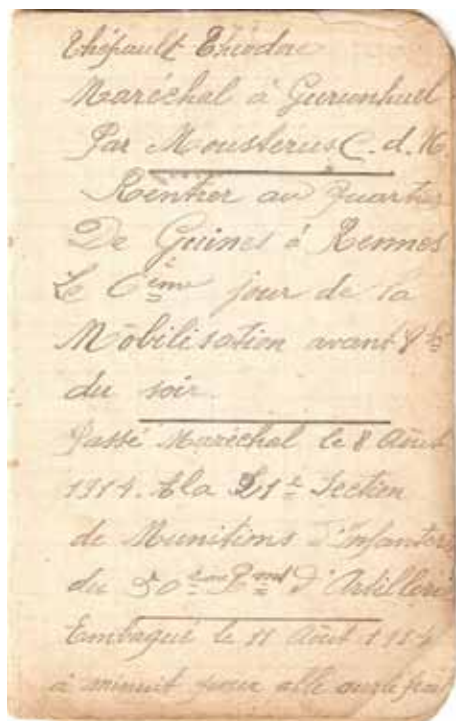 Thépault Théodore
Maréchal à Gurunhuel
Par Moustérus C. d. N.
Rentrer au quartier
De Guines à Rennes
Le 6ème jour de la
Mobilisation avant 8 h
du soir.
Passé Maréchal le 8 Août
1914. A la 21e Section
de Munitions d'Infanterie
du 50ème Rment d'Artillerie
Embaqué le 11 Août 1914
à minuit pour allé sur le front